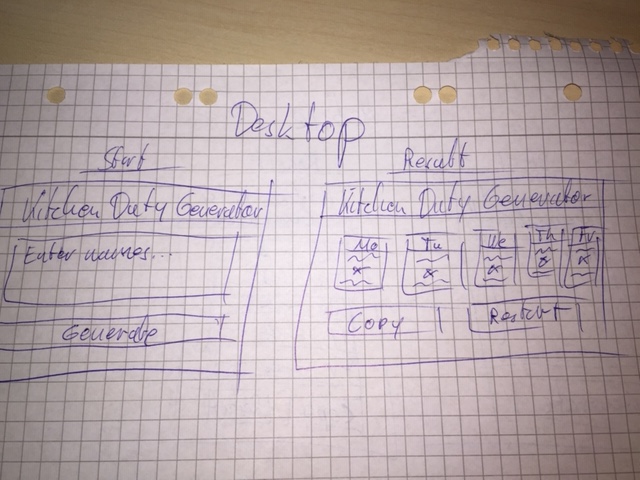 Desktop
Start
Kitchen Duty Generator
Enter names...
Generate
Result
Kitchen Duty Generator
Mo Tu We Th Fr
Copy Restart